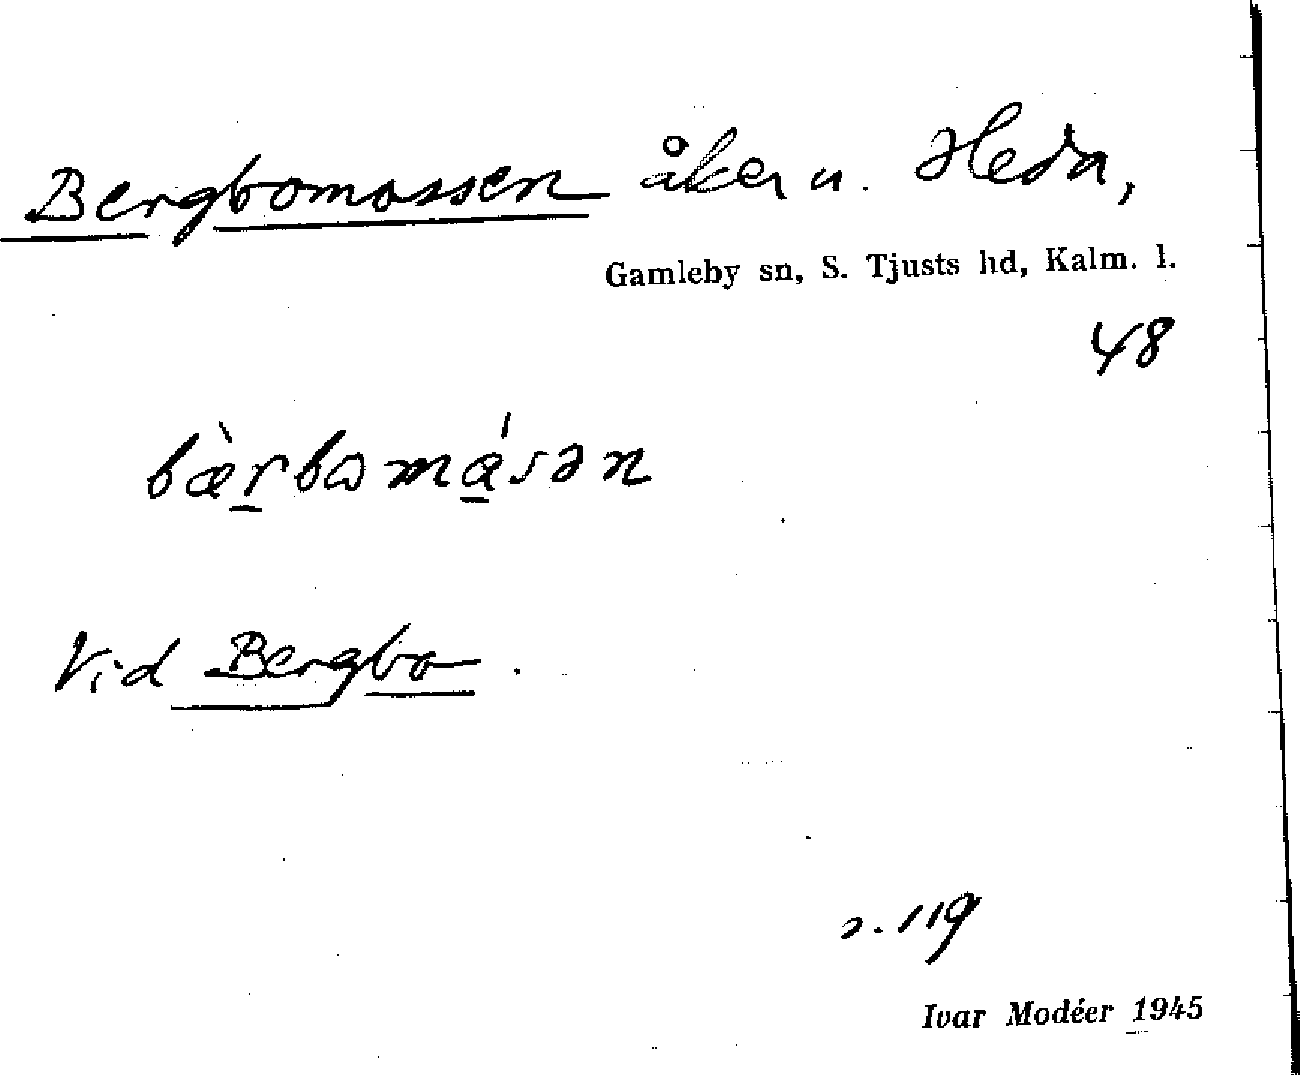 Bergbomossen åker u. Heda,
Gamleby sn, S. Tjusts hd, Kalm. l.
48
bæ̀r̠bωmά̠sən
Vid Bergbo.
s. 119
Ivar Modéer 1945